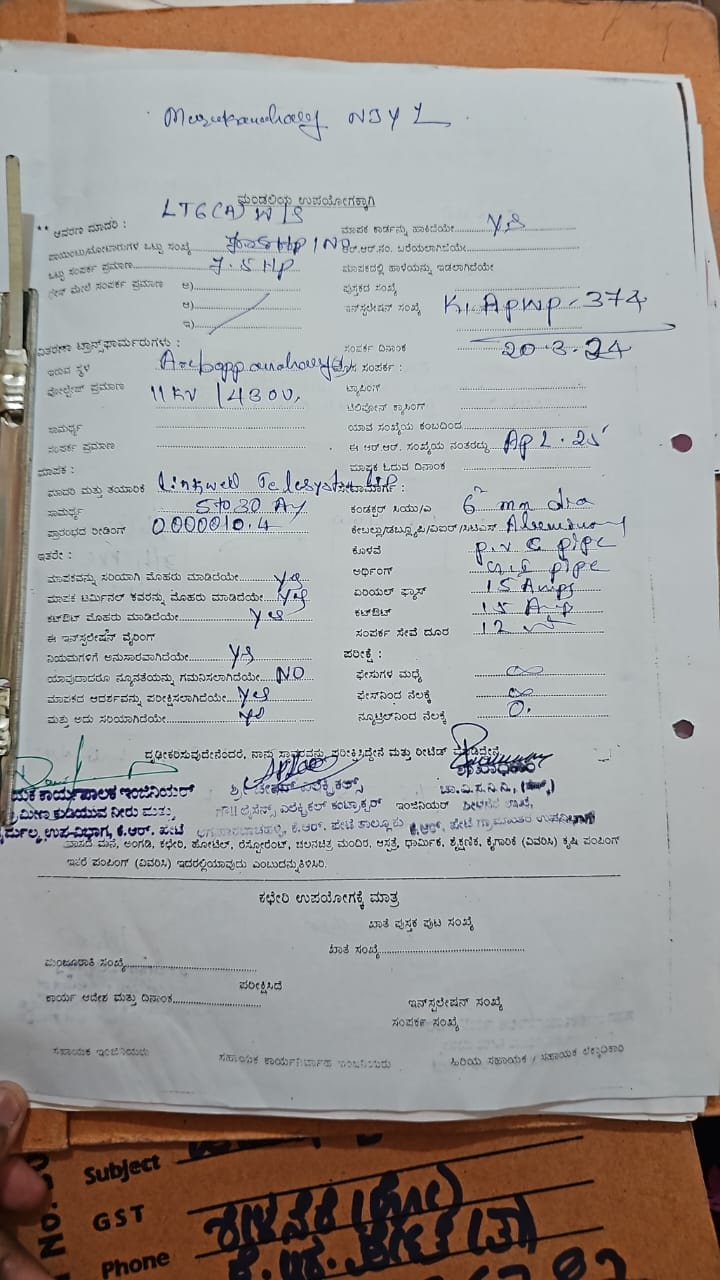 NJY L
ಮಂಡಲಿಯ ಉಪಯೋಗಕ್ಕಾಗಿ
LT6(A) W/S
** ಆವರಣ ಮಾದರಿ :
ಮಾಪಕ ಕಾರ್ಡನ್ನು ಹಾಕಿದೆಯೇ Yes
ಪಾಯಿಂಟು/ಮೋಟಾರುಗಳ ಒಟ್ಟು ಸಂಖ್ಯೆ 7.5 HP / No
ಆರ್.ಆರ್.ನಂ. ಬರೆಯಲಾಗಿದೆಯೇ
ಒಟ್ಟು ಸಂಪರ್ಕ ಪ್ರಮಾಣ 7.5 HP
ಮಾಪಕದಲ್ಲಿ ಹಾಳೆಯನ್ನು ಇಡಲಾಗಿದೆಯೇ
ಮೇಲೆ ಸಂಪರ್ಕ ಪ್ರಮಾಣ ಅ)
ಪುಸ್ತಕದ ಸಂಖ್ಯೆ
ಆ)
ಇನ್‌ಸ್ಟಲೇಷನ್ ಸಂಖ್ಯೆ K1APWP-374
ಇ)
ವಿತರಣಾ ಟ್ರಾನ್ಸ್‌ಫಾರ್ಮರುಗಳು :
ಸಂಪರ್ಕ ದಿನಾಂಕ 20-3-24
ಇರುವ ಸ್ಥಳ
ಸಂಪರ್ಕ :
ವೋಲ್ಟೇಜ್ ಪ್ರಮಾಣ 11KV / 430V,
ಟ್ಯಾಪಿಂಗ್
ಟೆಲಿಫೋನ್ ಕ್ರಾಸಿಂಗ್
ಸಾಮರ್ಥ್ಯ
ಯಾವ ಸಂಖ್ಯೆಯ ಕಂಬದಿಂದ
ಸಂಪರ್ಕ ಪ್ರಮಾಣ
ಈ ಆರ್.ಆರ್. ಸಂಖ್ಯೆಯ ನಂತರದ್ದು AP L. 25'
ಮಾಪಕ :
ಮಾಪಕ ಓದುವ ದಿನಾಂಕ
ಮಾದರಿ ಮತ್ತು ತಯಾರಿಕೆ Linkwell Telesystem
ಸಾಮರ್ಥ್ಯ 5 to 30 A
ಕಂಡಕ್ಟರ್ ಸಿಯು/ಎ 6 mm dia
ಪ್ರಾರಂಭದ ರೀಡಿಂಗ್ 0000010.4
ಕೇಬಲ್ಲು/ಡಬ್ಲ್ಯೂಪಿ/ವಿಐಆರ್/ಸಿಟಿಎಸ್
ಇತರೇ :
ಕೊಳವೆ P.V.C pipe
ಮಾಪಕವನ್ನು ಸರಿಯಾಗಿ ಮೊಹರು ಮಾಡಿದೆಯೇ Yes
ಅರ್ಥಿಂಗ್ pipe
ಮಾಪಕ ಟರ್ಮಿನಲ್ ಕವರನ್ನು ಮೊಹರು ಮಾಡಿದೆಯೇ Yes
ಏರಿಯಲ್ ಫ್ಯೂಸ್ 15 Amps
ಕಟ್‌ಔಟ್ ಮೊಹರು ಮಾಡಿದೆಯೇ Yes
ಕಟ್‌ಔಟ್ 15 Amp
ಈ ಇನ್‌ಸ್ಟಲೇಷನ್ ವೈರಿಂಗ್
ಸಂಪರ್ಕ ಸೇವೆ ದೂರ 12
ನಿಯಮಗಳಿಗೆ ಅನುಸಾರವಾಗಿದೆಯೇ Yes
ಪರೀಕ್ಷೆ :
ಯಾವುದಾದರೂ ನ್ಯೂನತೆಯನ್ನು ಗಮನಿಸಲಾಗಿದೆಯೇ NO
ಫೇಸುಗಳ ಮಧ್ಯೆ ∞
ಮಾಪಕದ ಆದರ್ಶವನ್ನು ಪರೀಕ್ಷಿಸಲಾಗಿದೆಯೇ Yes
ಫೇಸ್‌ನಿಂದ ನೆಲಕ್ಕೆ ∞
ಮತ್ತು ಅದು ಸರಿಯಾಗಿದೆಯೇ Yes
ನ್ಯೂಟ್ರಲ್‌ನಿಂದ ನೆಲಕ್ಕೆ 0.
ದೃಢೀಕರಿಸುವುದೇನೆಂದರೆ, ನಾನು ಸ್ಥಾವರವನ್ನು ಪರೀಕ್ಷಿಸಿದ್ದೇನೆ ಮತ್ತು
ಕಾರ್ಯಪಾಲಕ ಇಂಜಿನಿಯರ್
ಕುಡಿಯುವ ನೀರು ಮತ್ತು
ಲೈಸೆನ್ಸ್ ಎಲೆಕ್ಟ್ರಿಕಲ್ ಕಂಟ್ರಾಕ್ಟರ್ ಇಂಜಿನಿಯರ್
ನೈರ್ಮಲ್ಯ ಉಪ-ವಿಭಾಗ, ಕೆ.ಆರ್. ಪೇಟೆ
ಕೆ.ಆರ್. ಪೇಟೆ ತಾಲ್ಲೂಕು
ವಾಸದ ಮನೆ, ಅಂಗಡಿ, ಕಛೇರಿ, ಹೋಟೆಲ್, ರೆಸ್ಟೋರೆಂಟ್, ಚಲನಚಿತ್ರ ಮಂದಿರ, ಆಸ್ಪತ್ರೆ, ಧಾರ್ಮಿಕ, ಶೈಕ್ಷಣಿಕ, ಕೈಗಾರಿಕೆ (ವಿವರಿಸಿ) ಕೃಷಿ ಪಂಪಿಂಗ್
ಇತರೆ ಪಂಪಿಂಗ್ (ವಿವರಿಸಿ) ಇದರಲ್ಲಿಯಾವುದು ಎಂಬುದನ್ನು ತಿಳಿಸಿರಿ.
ಕಛೇರಿ ಉಪಯೋಗಕ್ಕೆ ಮಾತ್ರ
ಖಾತೆ ಪುಸ್ತಕ ಪುಟ ಸಂಖ್ಯೆ
ಖಾತೆ ಸಂಖ್ಯೆ
ಮಂಜೂರಾತಿ ಸಂಖ್ಯೆ
ಪರೀಕ್ಷಿಸಿದೆ
ಕಾರ್ಯ ಆದೇಶ ಮತ್ತು ದಿನಾಂಕ
ಇನ್‌ಸ್ಟಲೇಷನ್ ಸಂಖ್ಯೆ
ಸಂಪರ್ಕ ಸಂಖ್ಯೆ
ಸಹಾಯಕ ಇಂಜಿನಿಯರು
ಸಹಾಯಕ ಕಾರ್ಯನಿರ್ವಾಹಕ ಇಂಜಿನಿಯರು
ಹಿರಿಯ ಸಹಾಯಕ / ಸಹಾಯಕ ಲೆಕ್ಕಾಧಿಕಾರಿ
Subject
GST
Phone
NO.